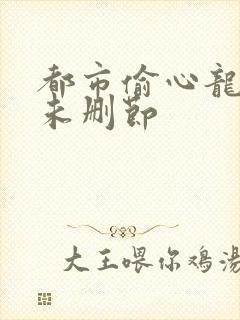 都市偷心龍
未删節
大王喂你鸡湯